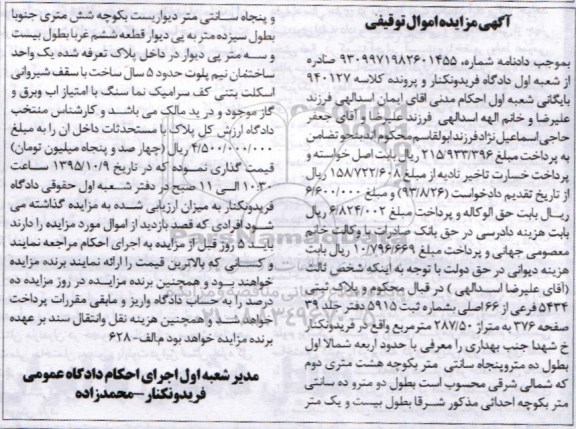 آگهی مزایده اموال توقیفی
بموجب دادنامه شماره، ۹۳۰۹۹۷۱۹۸۲۶۰۱۴۵۵ صادره
از شعبه اول دادگاه فریدونکنار و پرونده کلاسه ۹۴۰۱۲۷
بایگانی شعبه اول احکام مدنی اقای ایمان اسدالهی فرزند
علیرضا و خانم الهه اسدالهی فرزند علیرضا و آقای جعفر
حاجی اسماعیل نژاد فرزند ابوالقاسم محکوم اند بنحو تضامن
به پرداخت مبلغ ۲۱۵/۹۳۳/۳۹۶ ریال بابت اصل خواسته و
پرداخت خسارت تاخیر تادیه از مبلغ ۱۵۸/۷۲۲/۶۰۸ ریال
از تاریخ تقدیم دادخواست (۹۳/۸/۲۶) و مبلغ ۶/۶۰۰/۰۰۰
ریال بابت حق الوکاله و پرداخت مبلغ ۶/۸۲۴/۰۰۲ ریال
بابت هزینه دادرسی در حق بانک صادرات با وکالت خانم
معصومی جهانی و پرداخت مبلغ ۱۰/۷۹۶/۶۶۹ ریال بابت
هزینه دیوانی در حق دولت با توجه به اینکه شخص ثالث
(آقای علیرضا اسدالهی) در قبال محکوم و پلاک ثبتی
۵۴۳۴ فرعی از ۶۶ اصلی بشماره ثبت ۵۹۱۵ دفتر جلد ۳۹
صفحه ۳۷۶ به متراژ ۲۸۷/۵۰ مترمربع واقع در فریدونکنار
خ شهدا جنب بهداری را معرفی با حدود اربعه شمالا اول
بطول ده مترو پنجاه سانتی متر بکوچه هشت متری دوم
که شمالی شرقی محسوب است بطول دو مترو ده سانتی
متر بکوچه احداثی مذکور شرقا بطول بیست و یک متر
و پنجاه سانتی متر دیواریست بکوچه شش متری جنوبا
بطول سیزده متر به پی دیوار قطعه ششم غربا بطول بیست
و سه متر پی دیوار در داخل پلاک تعرفه شده یک واحد
ساختمان نیم پلوت حدود ۵ سال ساخت با سقف شیروانی
اسکلت بتنی کف سرامیک نما سنگ با امتیاز اب وبرق و
گاز موجود و در ید مالک می باشد و کارشناس منتخب
دادگاه ارزش کل پلاک با مستحدثات داخل ان را به مبلغ
۴/۵۰۰/۰۰۰/۰۰۰ ریال (چهار صد و پنجاه میلیون تومان)
قیمت گذاری نموده که در تاریخ ۱۳۹۵/۱۰/۹ ساعت
۱۰:۳۰ الی ۱۱ صبح در دفتر شعبه اول حقوقی دادگاه
فریدونکنار به میزان ارزیابی شده به مزایده گذاشته می
شود افرادی که قصد بازدید از اموال مورد مزایده را دارند
باید ۵ روز قبل از مزایده به اجرای احکام مراجعه نمایند
و کسانی که بالاترین قیمت را ارائه نمایند برنده مزایده
خواهند بود و همچنین برنده مزایده در روز مزایده ده
درصد را به حساب دادگاه واریز و مابقی مقررات پرداخت
خواهد شد و همچنین هزینه نقل وانتقال سند بر عهده
برنده مزایده خواهد بود م.الف-۶۲۸
مدیر شعبه اول اجرای احکام دادگاه عمومی
فریدونکنار-محمدزاده